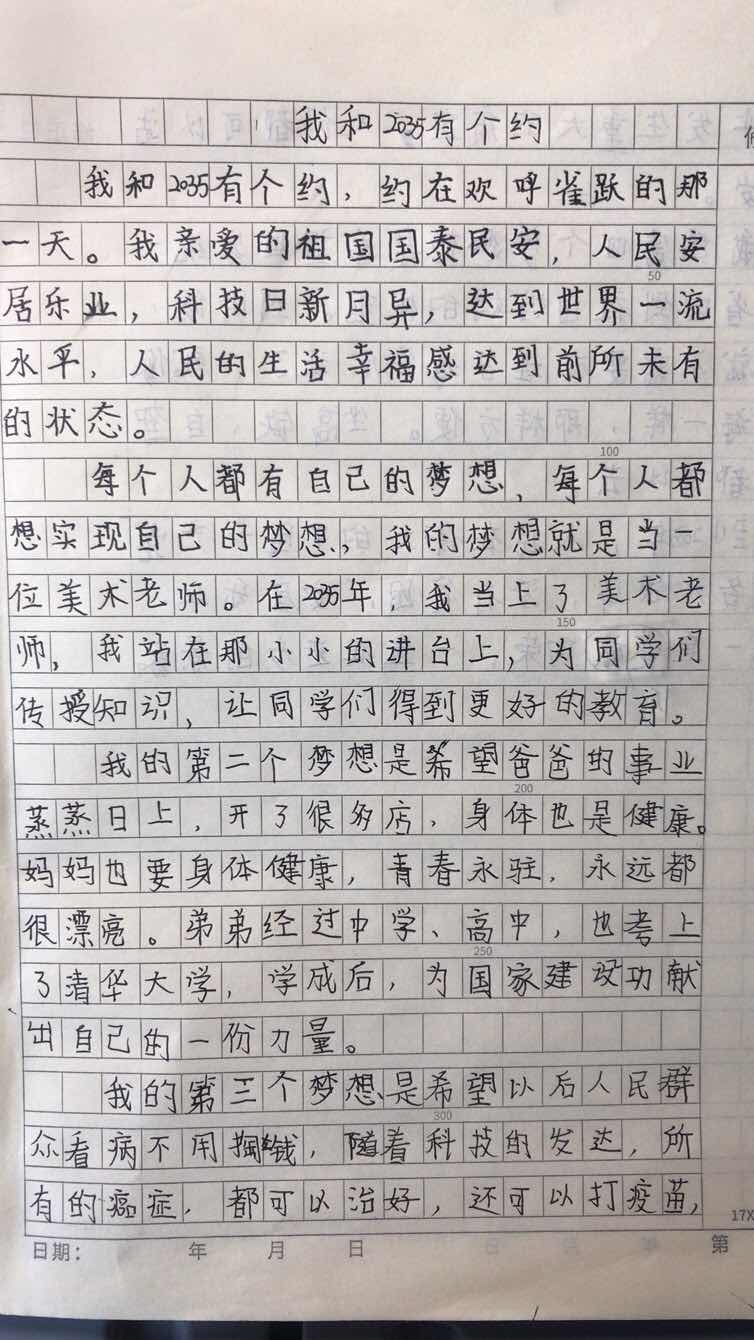 我和2035有个约
我和2035有个约，约在欢呼雀跃的那
一天。我亲爱的祖国国泰民安，人民安
50
居乐业，科技日新月异，达到世界一流
水平，人民的生活幸福感达到前所未有
的状态。
100
每个人都有自己的梦想，每个人都
想实现自己的梦想，我的梦想就是当一
位美术老师。在2035年，我当上了美术老
150
师，我站在那小小的讲台上，为同学们
传授知识，让同学们得到更好的教育。
我的第二个梦想是希望爸爸的事业
200
蒸蒸日上，开了很多店，身体也是健康。
妈妈也要身体健康，青春永驻，永远都
很漂亮。弟弟经过中学、高中，也考上
250
了清华大学，学成后，为国家建设功献
出自己的一份力量。
我的第三个梦想是希望以后人民群
300
众看病不用掏钱，随着科技的发达，所
有的癌症，都可以治好，还可以打疫苗，
17X
日期： 年 月 日 第